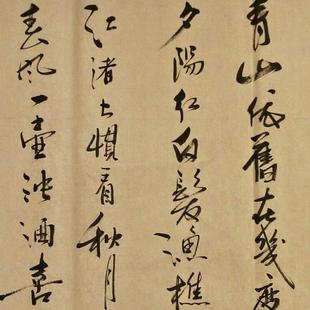 青山依舊在幾度
夕陽紅白髮漁樵
江渚上慣看秋月
春風一壺濁酒喜